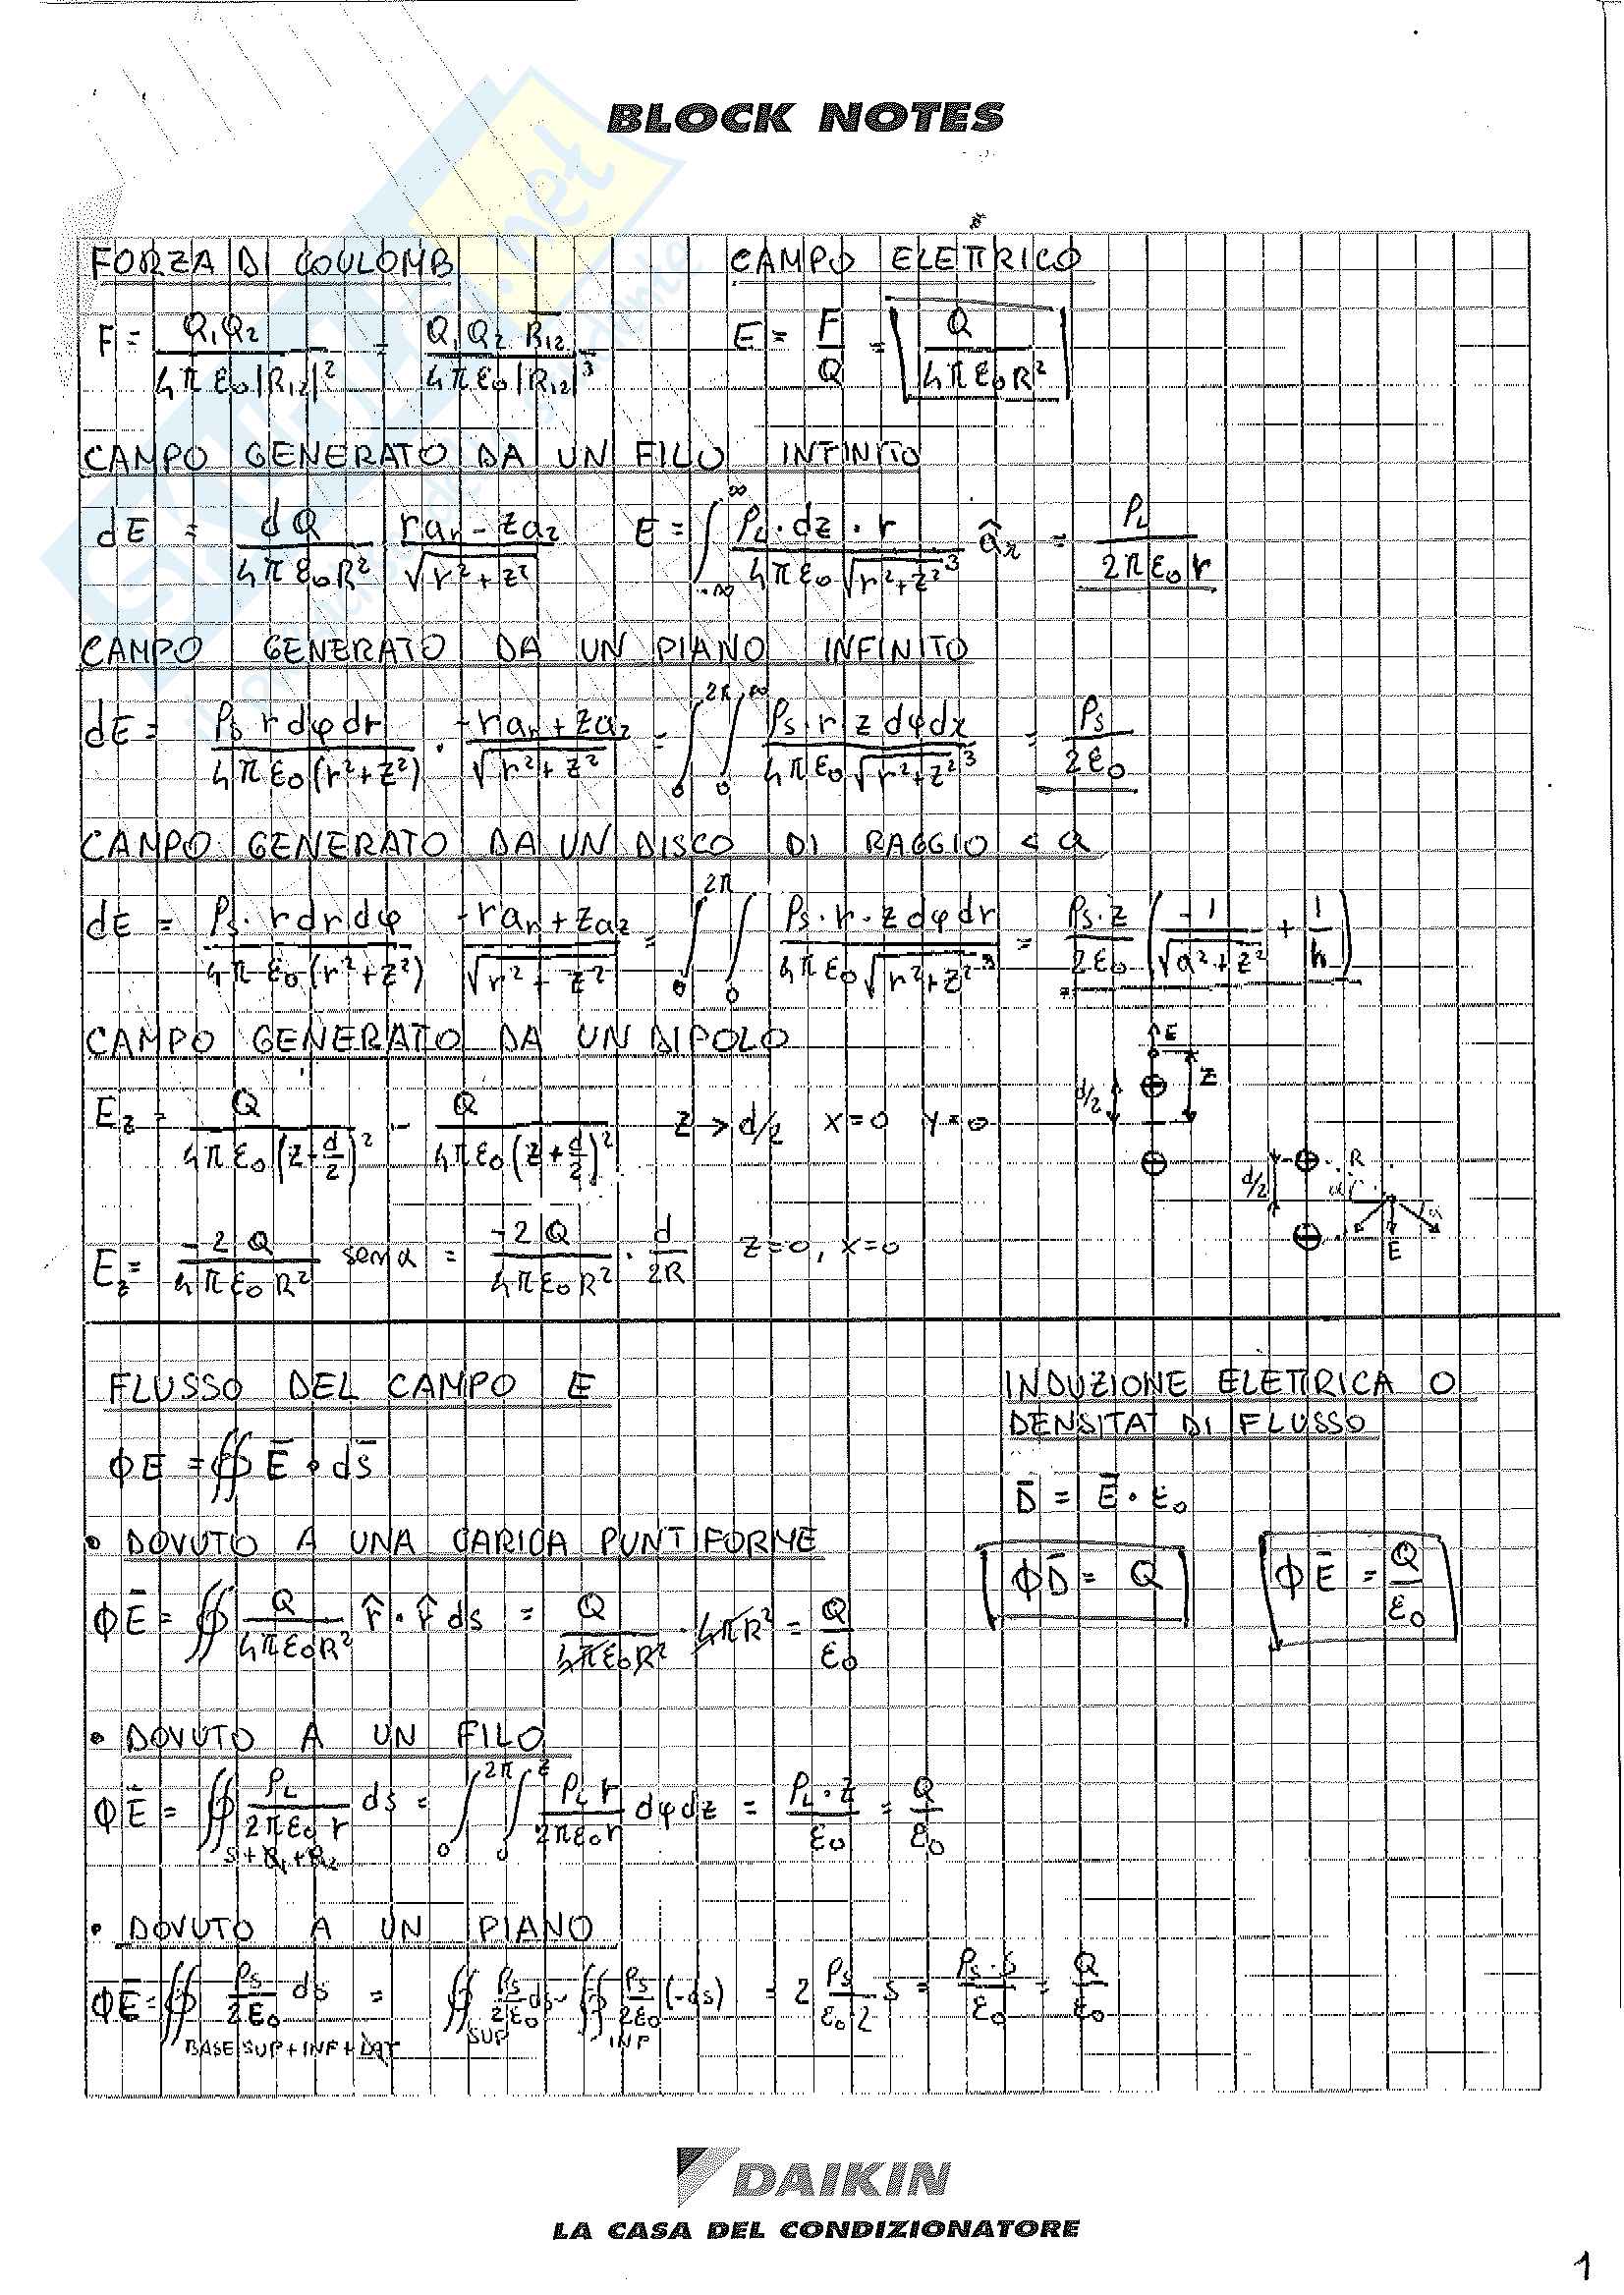 BLOCK NOTES
FORZA DI COULOMB
F = Q₁Q₂ / 4πε₀|R₁₂|² = Q₁Q₂ R̄₁₂ / 4πε₀|R₁₂|³
CAMPO ELETTRICO
E = F/Q = Q / 4πε₀R²
CAMPO GENERATO DA UN FILO INFINITO
dE = dQ / 4πε₀R² · (r aᵣ - z a_z) / √(r²+z²)   E = ∫_{-∞}^{∞} ρ_L · dz · r / 4πε₀√(r²+z²)³ âᵣ = ρ_L / 2πε₀r
CAMPO GENERATO DA UN PIANO INFINITO
dE = ρ_S r dφ dr / 4πε₀(r²+z²) · (-r aᵣ + z a_z) / √(r²+z²) = ∫₀^{2π} ∫₀^{∞} ρ_S · r z dφ dr / 4πε₀√(r²+z²)³ = ρ_S / 2ε₀
CAMPO GENERATO DA UN DISCO DI RAGGIO < a
dE = ρ_S · r dr dφ / 4πε₀(r²+z²) (-r aᵣ + z a_z) / √(r²+z²) = ∫₀^{2π} ∫₀ ρ_S · r · z dφ dr / 4πε₀√(r²+z²)³ = ρ_S · z / 2ε₀ (-1/√(a²+z²) + 1/h)
CAMPO GENERATO DA UN DIPOLO
E_z = Q / 4πε₀(z+d/2)² - Q / 4πε₀(z+d/2)²   z > d/2   x=0   y=0
E
z
d/2
d/2
R
E
E_z = -2Q / 4πε₀R² sen α = -2Q / 4πε₀R² · d/2R   z=0, x=0
FLUSSO DEL CAMPO E
ΦE = ∯ Ē · ds̄
INDUZIONE ELETTRICA O
DENSITA' DI FLUSSO
D̄ = Ē · ε₀
ΦD̄ = Q
ΦĒ = Q/ε₀
• DOVUTO A UNA CARICA PUNTIFORME
ΦĒ = ∯ Q / 4πε₀R² r̂ · r̂ ds = Q / 4πε₀R² · 4πR² = Q/ε₀
• DOVUTO A UN FILO
ΦĒ = ∯ ρ_L / 2πε₀r ds = ∫₀^{2π} ∫₀^{z} ρ_L r / 2πε₀r dφ dz = ρ_L · z / ε₀ = Q/ε₀
S+B₁+B₂
• DOVUTO A UN PIANO
ΦĒ = ∯ ρ_S / 2ε₀ ds = ∯ ρ_S / 2ε₀ ds - ∯ ρ_S / 2ε₀ (-ds) = 2 ρ_S / ε₀2 S = ρ_S · S / ε₀ = Q/ε₀
BASE SUP + INF + LAT   SUP   INF
DAIKIN
LA CASA DEL CONDIZIONATORE
1